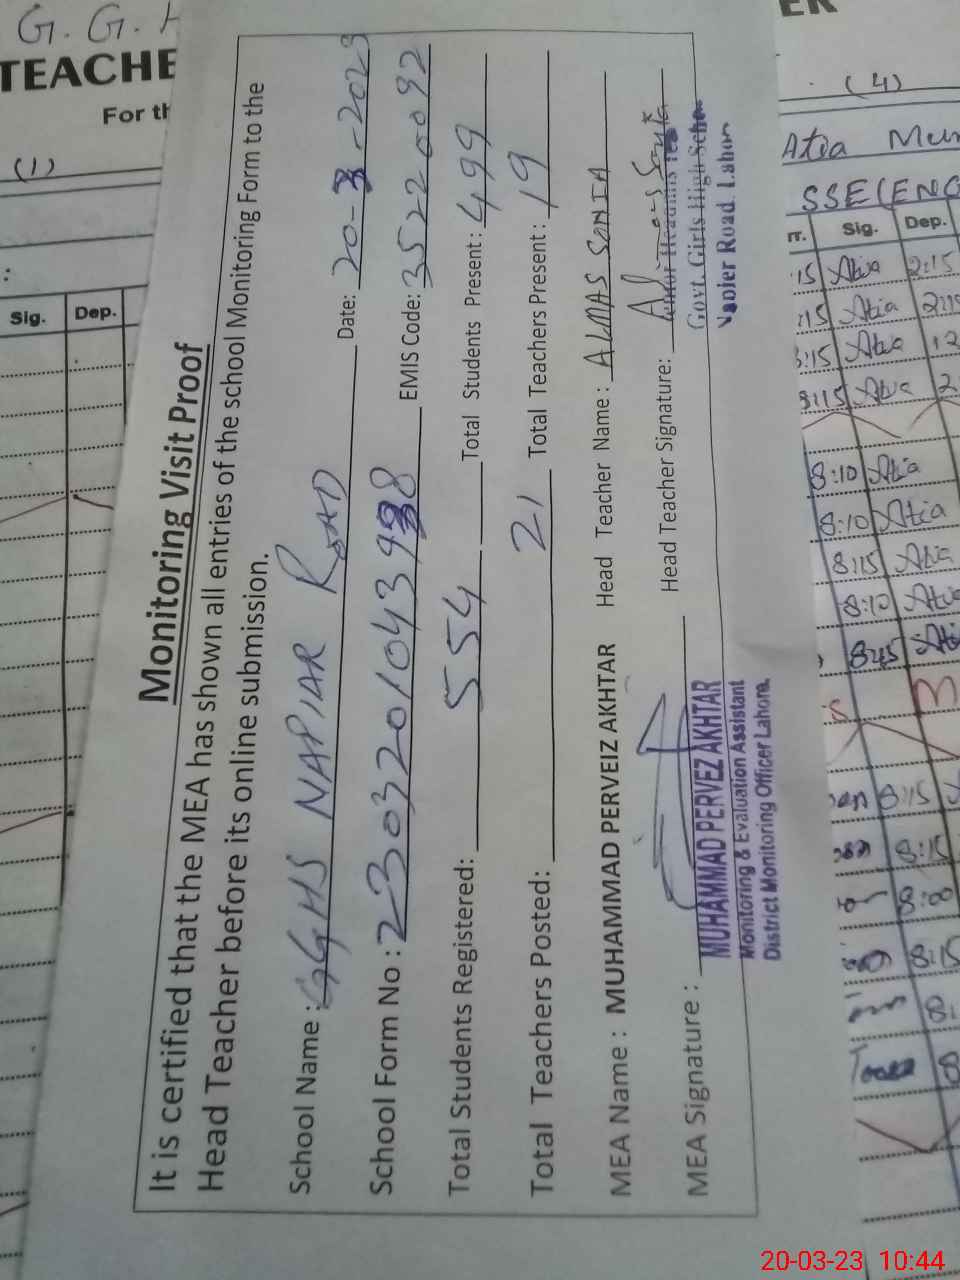 Monitoring Visit Proof
It is certified that the MEA has shown all entries of the school Monitoring Form to the
Head Teacher before its online submission.
School Name : GGHS NAPIAR ROAD Date: 20-3-2023
School Form No : EMIS Code: 35220092
Total Students Registered: 554 Total Students Present: 499
Total Teachers Posted: 21 Total Teachers Present: 19
MEA Name : MUHAMMAD PERVEIZ AKHTAR Head Teacher Name : ALMAS SONIA
MEA Signature : Head Teacher Signature:
MUHAMMAD PERVEZ AKHTAR
Monitoring & Evaluation Assistant
District Monitoring Officer Lahore.
Govt. Girls High
Napier Road. Lahore
G. G.
TEACHE
For th
(1)
Sig. Dep.
ER
(4)
Atia
SSE (ENG
Sig. Dep.
:15 Atia 2:15
:15 Atia
8:15 Atia
8:15 Atia
8:10 Atia
8:10 Atia
8:15 Atia
8:10 Atia
8:45 Atia
8:15
8:15
8:00
8:15
20-03-23 10:44